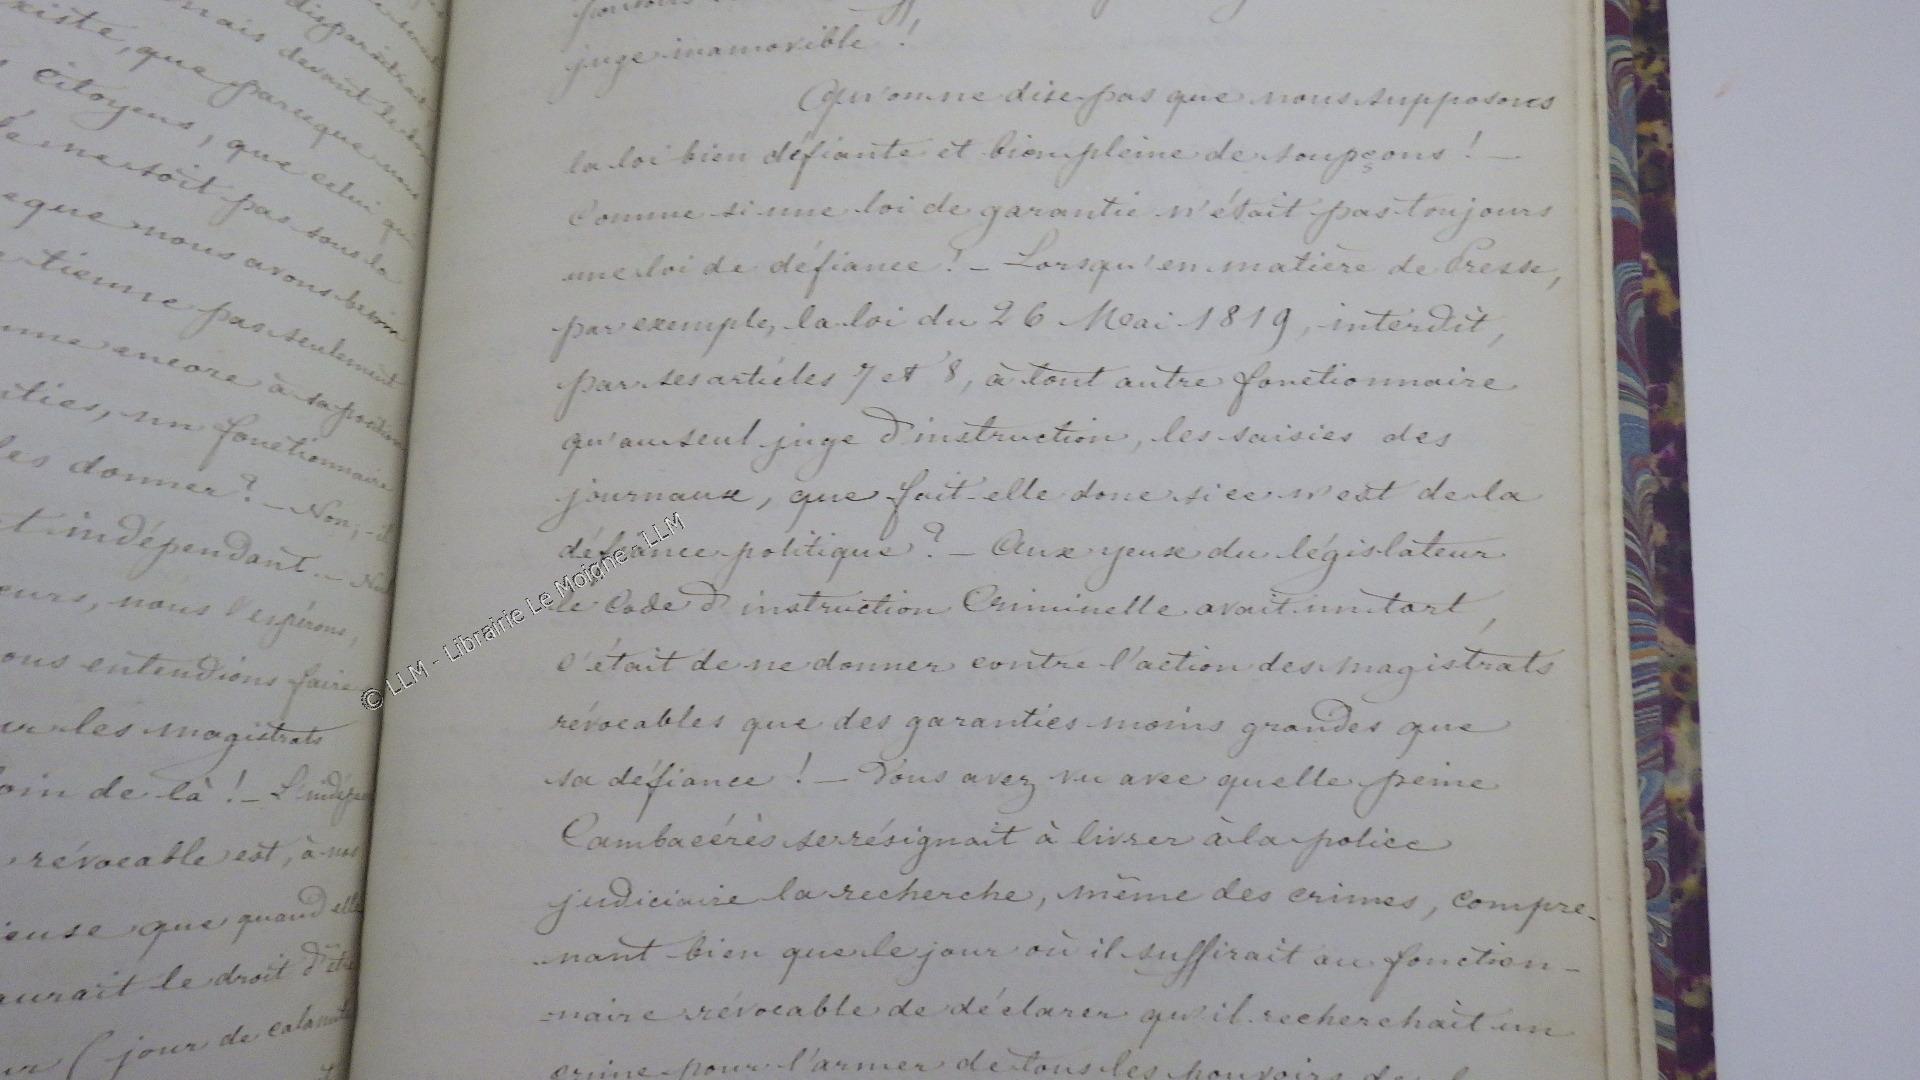 disparaitrait
mais devant le
existe, que parceque nous
citoyens, que celui qui
ne soit pas sous la
que nous avons besoin
tienne pas seulement
encore à sa position
un fonctionnaire
les donner ? — Non; il
indépendant. —
nous l'espérons,
entendions faire
les magistrats
loin de là ! —
révocable est, à nos
que quand elle
aurait le droit d'être
(jour de calamité
juge inamovible !
Qu'on ne dise pas que nous supposons
la loi bien défiante et bien pleine de soupçons ! —
Comme si une loi de garantie n'était pas toujours
une loi de défiance ! — Lorsqu'en matière de Presse,
par exemple, la loi du 26 Mai 1819, interdit,
par ses articles 7 et 8, à tout autre fonctionnaire
qu'au seul juge d'instruction, les saisies des
journaux, que fait-elle donc si ce n'est de la
défiance politique ? — Aux yeux du législateur
le Code d'instruction Criminelle avait un tort,
c'était de ne donner contre l'action des magistrats
révocables que des garanties moins grandes que
sa défiance ! — Vous avez vu avec quelle peine
Cambacérès se résignait à livrer à la police
judiciaire la recherche, même des crimes, compre-
-nant bien que le jour où il suffirait au fonction-
-naire révocable de déclarer qu'il recherchait un
crime pour l'armer de tous les pouvoirs de
© LLM - Librairie Le Moigne - LLM